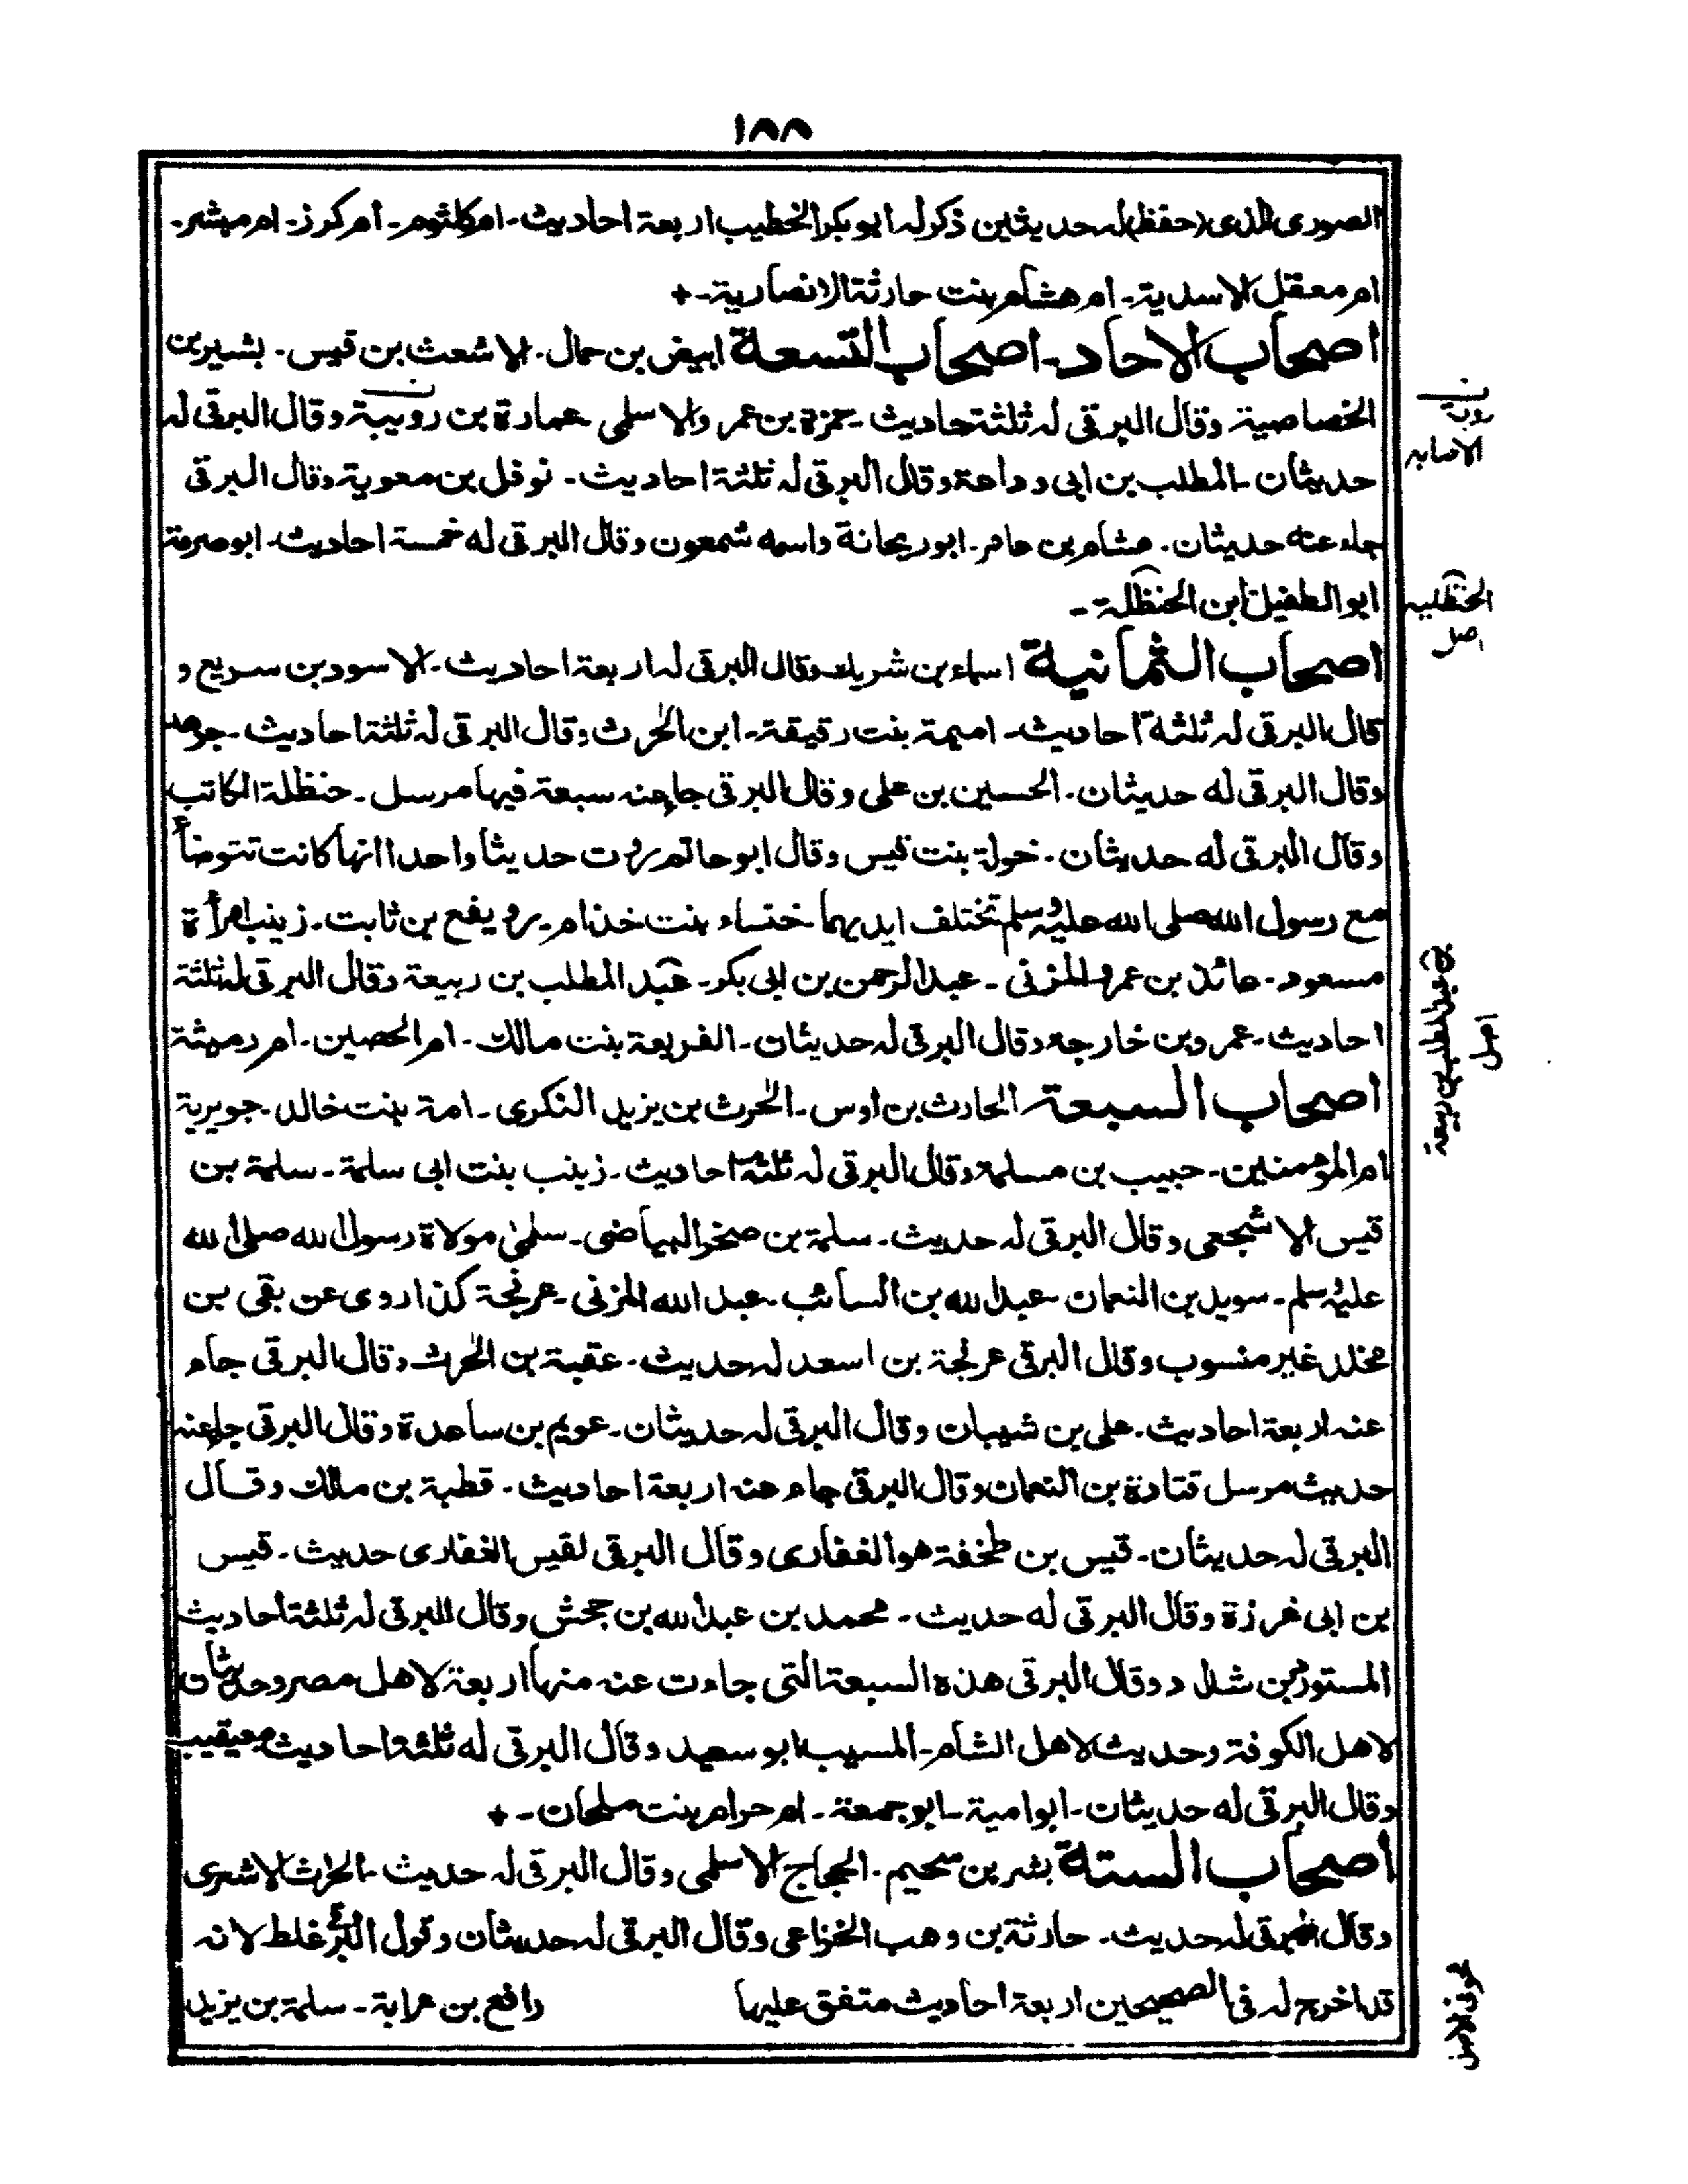 ١٨٨
الصوری الذی (حفظ) له حدیثین ذکر له ابو بکر الخطیب اربعة احادیث۔ ام کلثوم۔ ام کرز۔ ام مبشر۔
ام معقل الاسدیة۔ ام هشام بنت حارثة الانصاریة۔
اصحاب الاحاد۔ اصحاب التسعة ابیض بن حمال۔ الاشعث بن قیس۔ بشیر بن
الخصاصیة وقال البرقی له ثلثة حادیث۔ حمزة بن عمر والاسلمی عمارة بن رویبة وقال البرقی له
روبة
الاصابه
حدیثان۔ المطلب بن ابی وداعة وقال البرقی له ثلثة احادیث۔ نوفل بن معویة وقال البرقی
جاء عنه حدیثان۔ هشام بن عامر۔ ابو ریحانة واسمه شمعون وقال البرقی له خمسة احادیث۔ ابو صرمة
ابو الطفیل ابن الحنظلة۔
الحنظلیه
اصل
اصحاب الثمانیة اسماء بن شریك وقال البرقی له اربعة احادیث۔ الاسود بن سریع و
قال البرقی له ثلثة احادیث۔ امیمة بنت رقیقة۔ ابن الحرث وقال البرقی له ثلثة احادیث۔ جرهد
وقال البرقی له حدیثان۔ الحسین بن علی وقال البرقی جاء عنه سبعة فیها مرسل۔ حنظلة الکاتب
وقال البرقی له حدیثان۔ خولة بنت قیس وقال ابو حاتم روت حدیثا واحدا انها کانت تتوضأ
مع رسول الله صلی الله علیه وسلم تختلف ایدیهما۔ خنساء بنت خذام۔ رویفع بن ثابت۔ زینب امرأة
مسعود۔ عائذ بن عمرو المزنی۔ عبد الرحمن بن ابی بکر۔ عبد المطلب بن ربیعة وقال البرقی له ثلثة
عبد المطلب بن ربیعة
اصل
احادیث۔ عمرو بن خارجه وقال البرقی له حدیثان۔ الفریعة بنت مالك۔ ام الحصین۔ ام رمیثة
اصحاب السبعة الحادث بن اوس۔ الحرث بن یزید النکری۔ امة بنت خالد۔ جویریة
ام المؤمنین۔ حبیب بن مسلمة وقال البرقی له ثلثة احادیث۔ زینب بنت ابی سلمة۔ سلمة بن
قیس الاشجعی وقال البرقی له حدیث۔ سلمة بن صخر البیاضی۔ سلمی مولاة رسول الله صلی الله
علیه وسلم۔ سوید بن النعمان۔ عبد الله بن السائب۔ عبد الله المزنی۔ عرفجة کذا روی عن بقی بن
مخلد غیر منسوب وقال البرقی عرفجة بن اسعد له حدیث۔ عقبة بن الحرث وقال البرقی جاء
عنه اربعة احادیث۔ علی بن شیبان وقال البرقی له حدیثان۔ عویم بن ساعدة وقال البرقی جاء عنه
حدیث مرسل قتادة بن النعمان وقال البرقی جاء عنه اربعة احادیث۔ قطبة بن مالك وقال
البرقی له حدیثان۔ قیس بن طخفة هو الغفاری وقال البرقی لقیس الغفاری حدیث۔ قیس
بن ابی غرزة وقال البرقی له حدیث۔ محمد بن عبد الله بن جحش وقال البرقی له ثلثة احادیث
المستورد بن شداد وقال البرقی هذه السبعة التی جاءت عنه منها اربعة لاهل مصر وحدیثان
لاهل الکوفة وحدیث لاهل الشام۔ المسیب ابو سعید وقال البرقی له ثلثة احادیث معیقیب
وقال البرقی له حدیثان۔ ابو امیة۔ ابو جمعة۔ ام حرام بنت ملحان۔
اصحاب الستة بشر بن سحیم۔ الحجاج الاسلمی وقال البرقی له حدیث۔ الحرث الاشعری
وقال البرقی له حدیث۔ حارثة بن وهب الخزاعی وقال البرقی له حدیثان وقول البرقی غلط لانه
قد اخرج له فی الصحیحین اربعة احادیث متفق علیها رافع بن عرابة۔ سلمة بن یزید